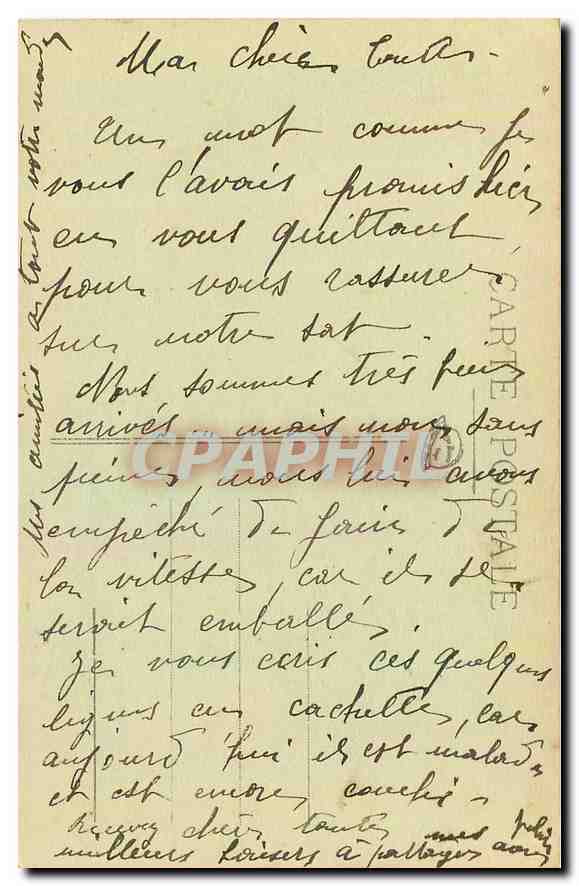 Ma chère tante -
Un mot comme je
vous l'avais promis hier
en vous quittant,
pour vous rassurer
sur notre sort.
Nous sommes très bien
arrivés mais non sans
peine, nous lui avons
empêché de faire de
la vitesse, car il se
serait emballé.
Je vous écris ces quelques
lignes en cachette, car
aujourd'hui il est malade
et est encore couché -
Recevez chère tante mes
meilleurs baisers à partager avec
Mes amitiés à tout votre monde
CARTE POSTALE
CPAPHIL